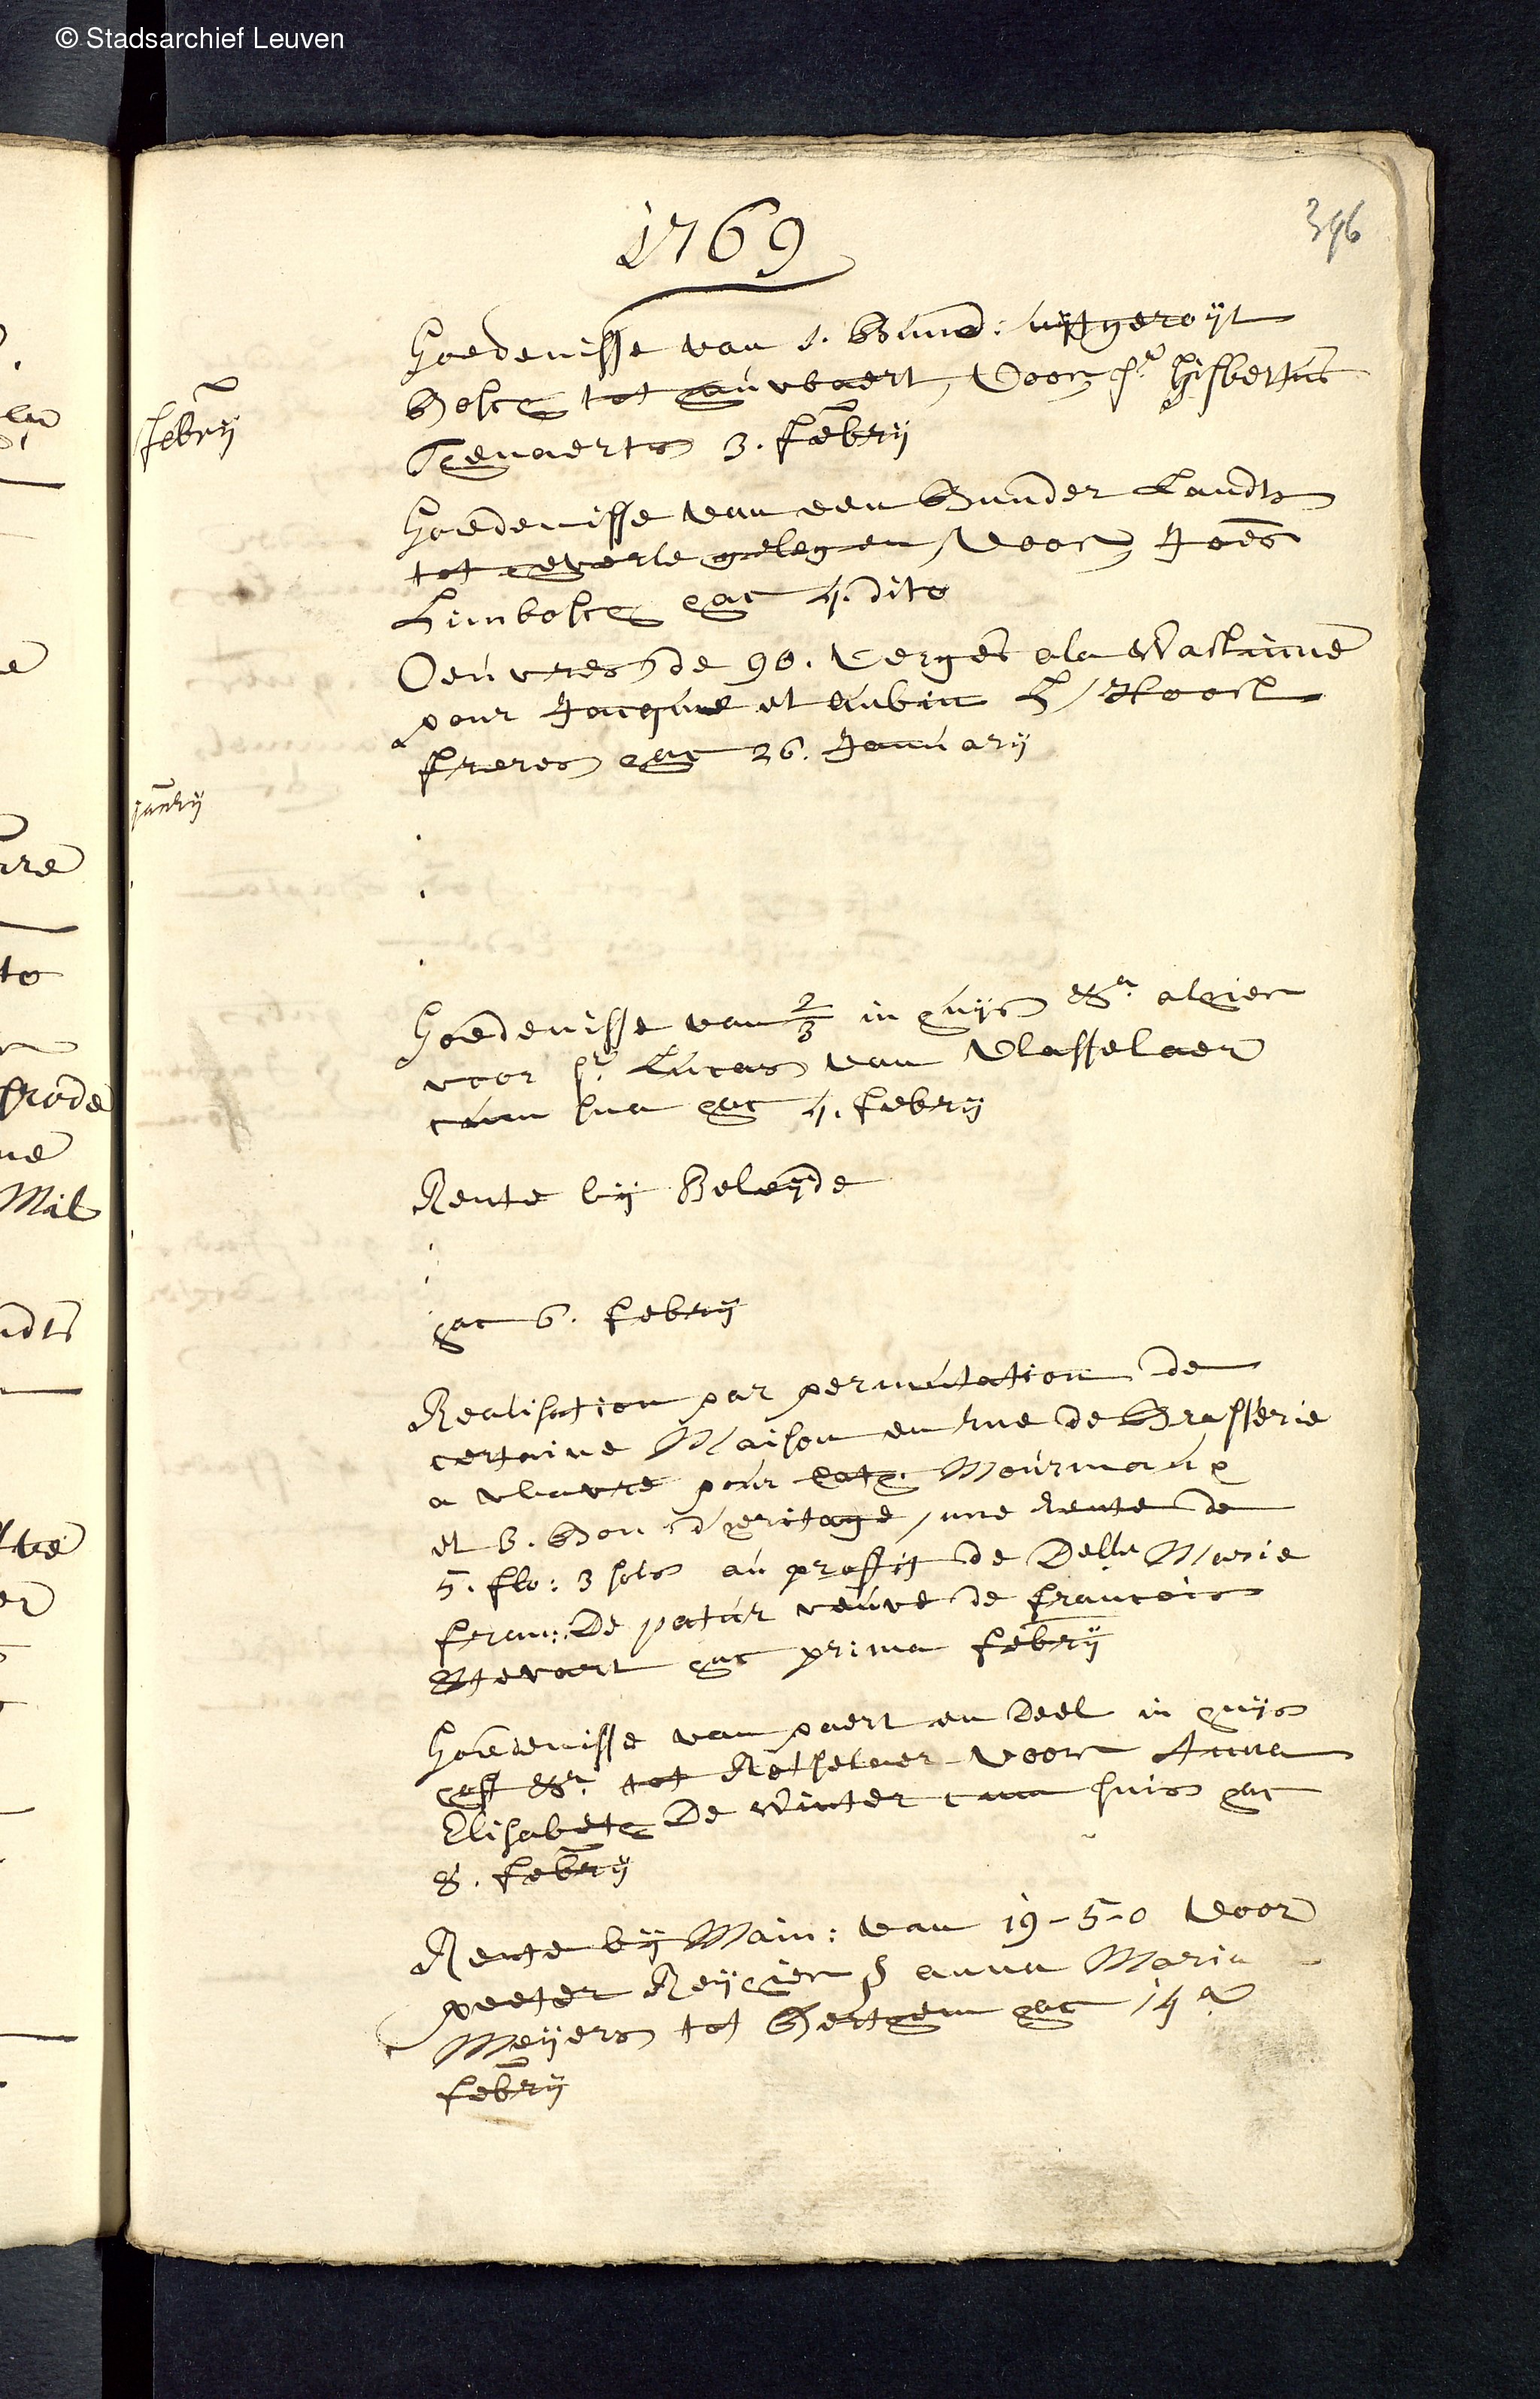 © Stadsarchief Leuven
396
1769
Goedenisse van 1. Bund: uijtgeroijt
Bosch tot voor Sr Gisbertus
3. febrij
febrij
Goedenisse van een Bunder Landts
tot everle gelegen, voor Joes
Limbosch hac 4. dito
Oeuvres de 90. verges ala Wastinne
pour Jacque et Aubin
freres hac 26. January
janrij
.
.
.
Goedenisse van 2/3 in huijs &a alhier
voor Sr Lucas van Vlasselaer
cum sua hac 4. febrij
Rente bij Beleijde
.
.
hac 6. febrij
Realisation par permutation de
certaine Maison en rue de Brasserie
a Wavre pour Mourmaux
et 3. Bon d'heritage, une rente de
5. flo: 3 sols au proffit de Delle Marie
fran: De patur veuve de francois
Stevart hac prima febrij
Goedenisse van paert en deel in huijs
hoff &a tot Rotselaer voor Anna
Elisabeth De Winter cum suis hac
8. febrij
Rente bij Main: van 19-5-0 voor
peeter anna Maria
Meijers tot Berthem hac 14a
febrij